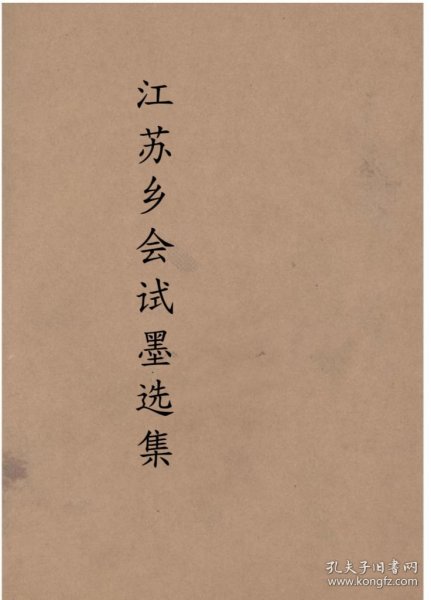 江苏乡会试墨选集
孔夫子旧书网
www.kongfz.com